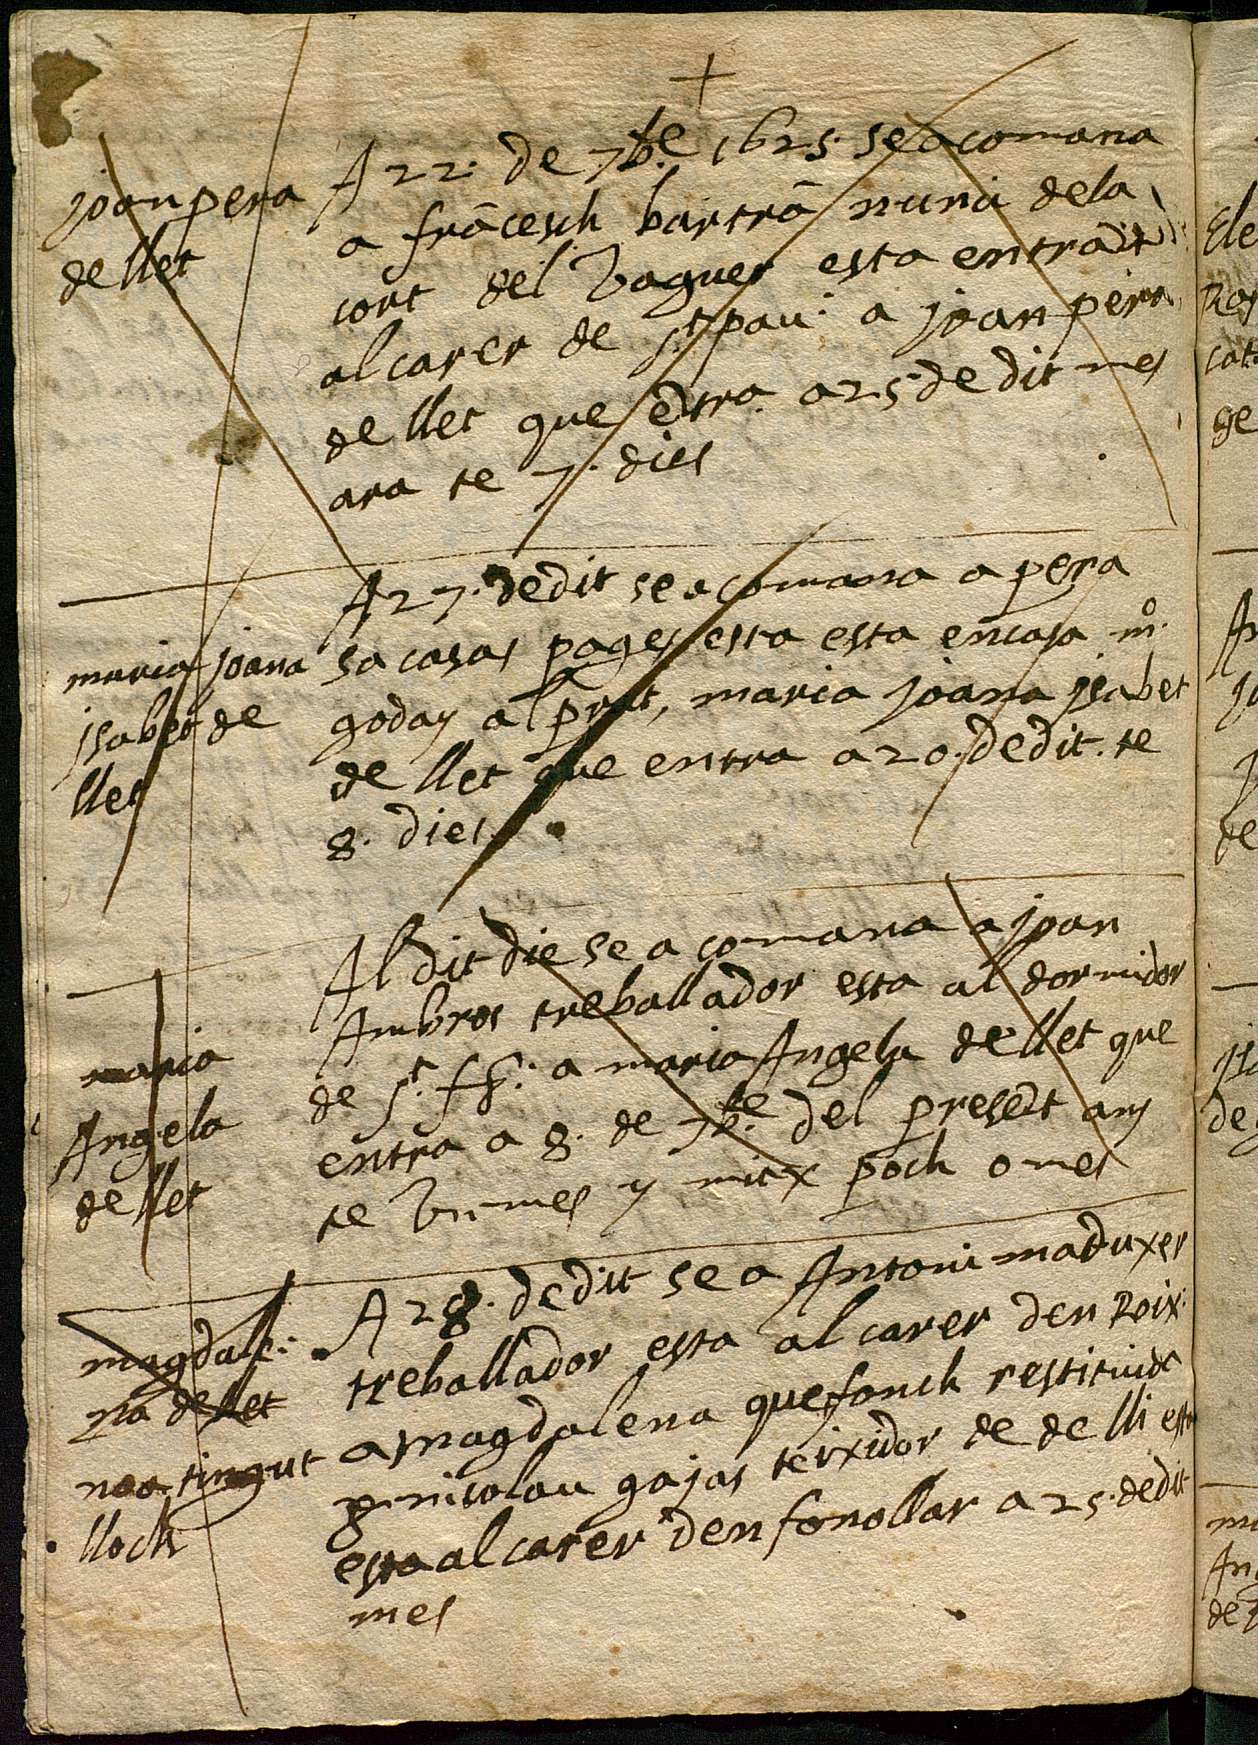 +
joan pera
de llet
A 22. de 7bre 1625. se acomana
a frācesch bartrā nunci dela
cort del vaguer esta entrādt
al carer de st pau. a joan pera
de llet que ētra. a 25 de dit mes
ara te 7. dies
maria joana
jsabet de
llet
A 27. dedit se acomana a pera
sa casas pages esta esta encasa mo.
goday al prat, maria joana jsabet
de llet que entra a 20. dedit. te
8. dies.
maria
Angela
de llet
Al dit die se a comana a joan
Ambros treballador esta al dormidor
de st. fs. a maria Angela de llet que
entra a 8. de 7bre. del presēt any
te un mes y mitx poch o mes
magdale:
na de llet
noa tingut
lloch
A 28. dedit se a Antoni maduxer
treballador esta al carer den Roix.
a magdalena que fonch restituida
p. nicolau gajas teixidor de de lli esta
esta al carer den fonollar a 25. dedit
mes